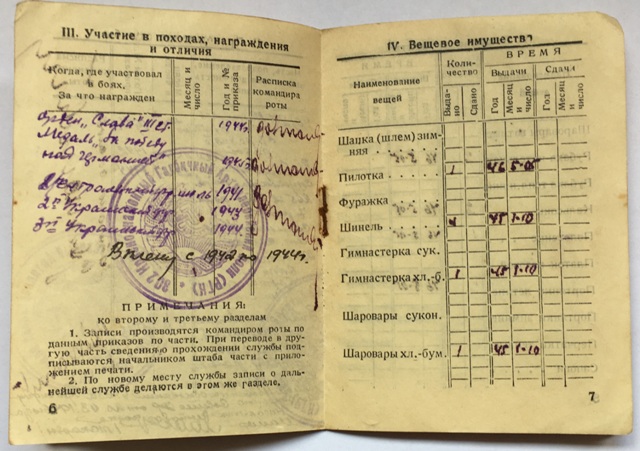 III. Участие в походах, награждения
и отличия
Когда, где участвовал
в боях.
За что награжден
Месяц и
число
Год и №
приказа
Расписка
командира
роты
Орден „Слава" III ст.
1944г.
Медаль „За победу
над Германией"
1945г.
1941
2й Украинский фр.
1944
3й Украинский фр.
1944
В плену с 1942 по 1944г.
ПРИМЕЧАНИЯ:
ко второму и третьему разделам
1. Записи производятся командиром роты по
данным приказов по части. При переводе в дру-
гую часть сведения о прохождении службы под-
писываются начальником штаба части с прило-
жением печати.
2. По новому месту службы записи о даль-
нейшей службе делаются в этом же разделе.
6
IV. Вещевое имущество
Наименование
вещей
Коли-
чество
ВРЕМЯ
Выдачи
Сдачи
Выда-
но
Сдано
Год
Месяц
и число
Год
Месяц
и число
Шапка (шлем) зим-
няя
Пилотка 1 46 5-05
Фуражка
Шинель 1 45 1-10
Гимнастерка сук.
Гимнастерка хл.-б. 1 45 1-10
Шаровары сукон.
Шаровары хл.-бум. 1 45 1-10
7